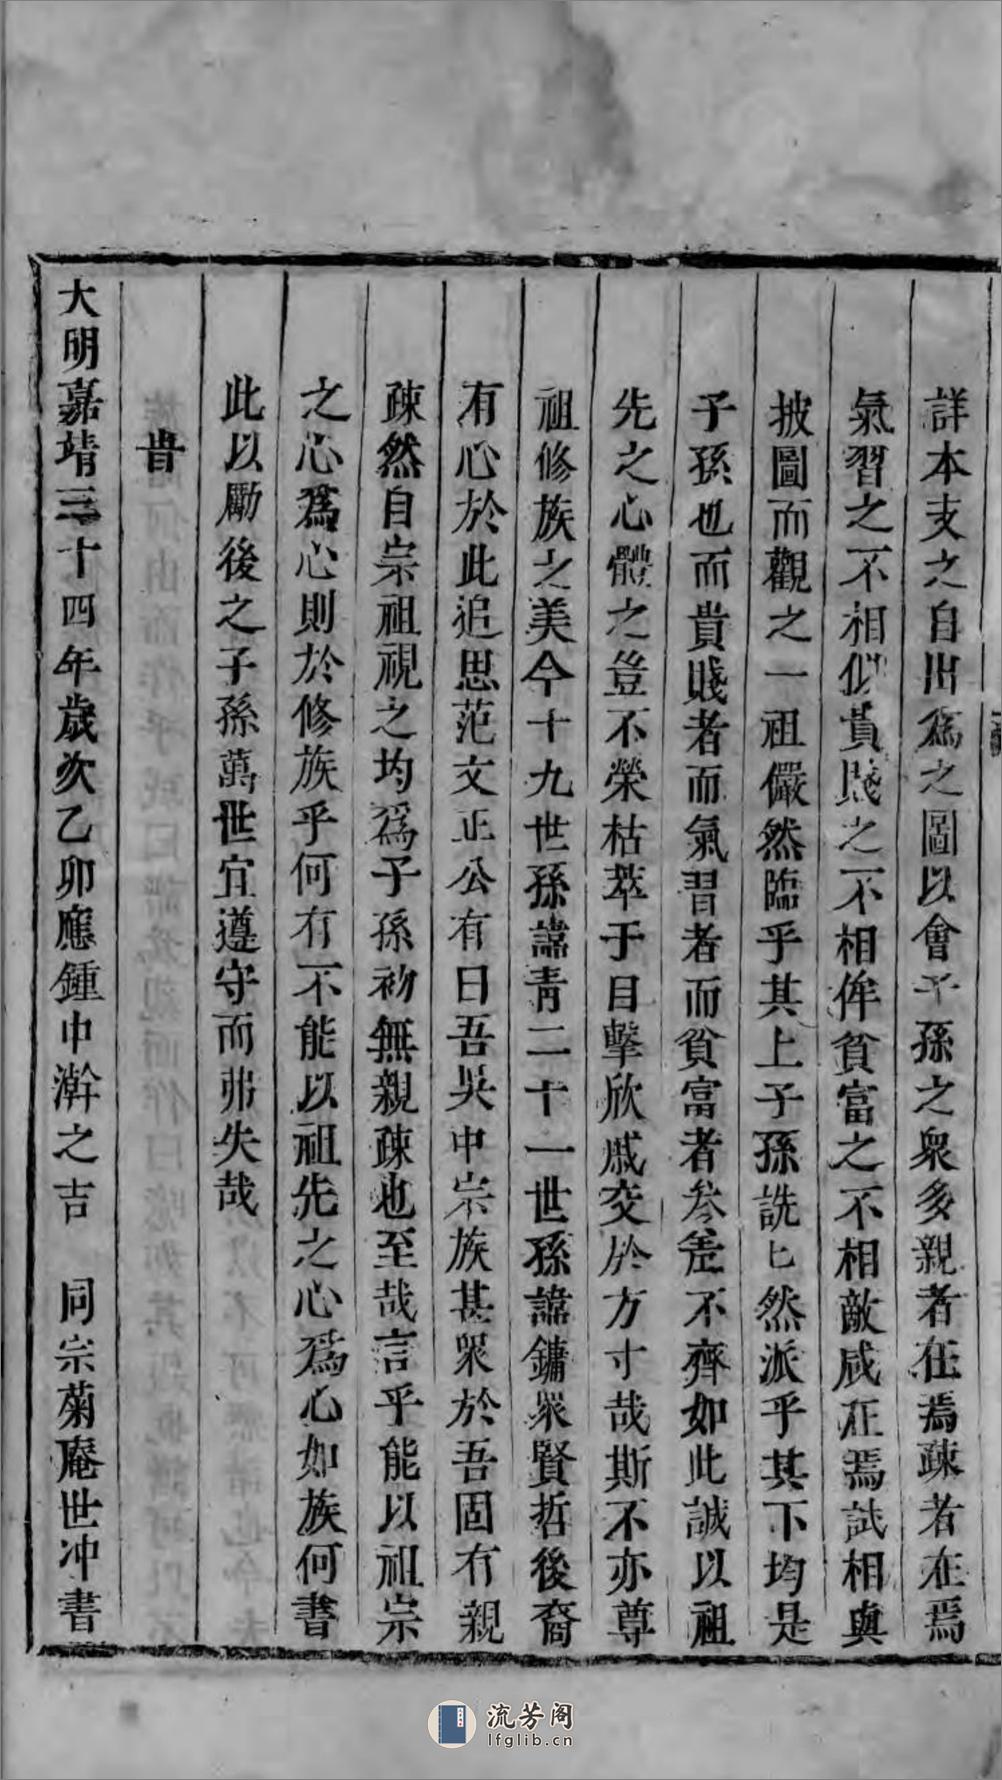 詳本支之自出為之圖以會子孫之衆多親者在焉疎者在焉
氣習之不相似貴賤之不相侔貧富之不相敵咸在焉試相與
披圖而觀之一祖儼然臨乎其上子孫詵匕然派乎其下均是
子孫也而貴賤者而氣習者而貧富者叅差不齊如此誠以祖
先之心體之豈不榮枯萃于目擊欣戚交於方寸哉斯不亦尊
祖修族之美今十九世孫諱青二十一世孫諱鏞衆賢哲後裔
有心於此追思范文正公有曰吾吳中宗族甚衆於吾固有親
疎然自宗祖視之均為子孫初無親疎也至哉言乎能以祖宗
之心爲心則於修族乎何有不能以祖先之心爲心如族何書
此以勵後之子孫萬世宜遵守而弗失哉
旹
大明嘉靖三十四年歲次乙卯應鍾中澣之吉 同宗菊庵世冲書
流芳阁
lfglib.cn